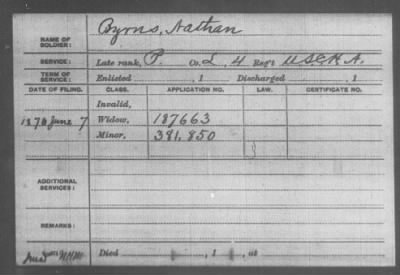 NAME OF SOLDIER: Byrns, Nathan
SERVICE: Late rank, P. Co. L, 4 Reg't U.S.C.H.A.
TERM OF SERVICE: Enlisted , 1 Discharged , 1
DATE OF FILING. CLASS. APPLICATION NO. LAW. CERTIFICATE NO.
Invalid,
June 7 Widow, 187663
Minor, 381,850
ADDITIONAL SERVICES:
REMARKS:
Died , 1 , at